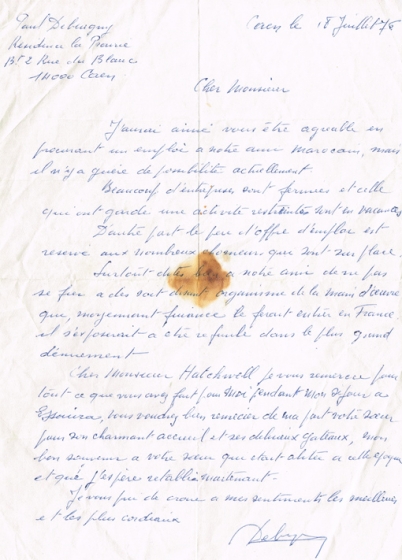 Paul Debugny
Caen le 18 Juillet 76
Residence la Prairie
Bt 2 Rue du Blanc
14000 Caen
Cher Monsieur
J'aurai aimé vous être agréable en
procurant un emploi a notre ami marocain, mais
il n'y a guère de possibilité actuellement.
Beaucoup d'entreprises sont fermées et celle
qui ont gardé une activité restreintes sont en vacances
D'autre part le peu d'offre d'emploi est
reservé aux nombreux chomeurs que sont sur place.
Surtout dites a notre ami de ne pas
se fier a des soit disant organisme de la main d'œuvre
que, moyennant finance le feront entrer en France
il s'exposerait a être refoulé dans le plus grand
dénuement
Cher Monsieur Hatchwell je vous remercie pour
tout ce que vous avez fait pour moi pendant mon séjour a
Essaouira, vous voudrez bien remercier de ma part votre sœur
pour son charmant accueil et ses délicieux gateaux, mon
bon souvenir a votre sœur que était alitée a cette époque
et que j'espère rétablie maintenant.
Je vous prie de croire a mes sentiments les meilleurs
et les plus cordiaux